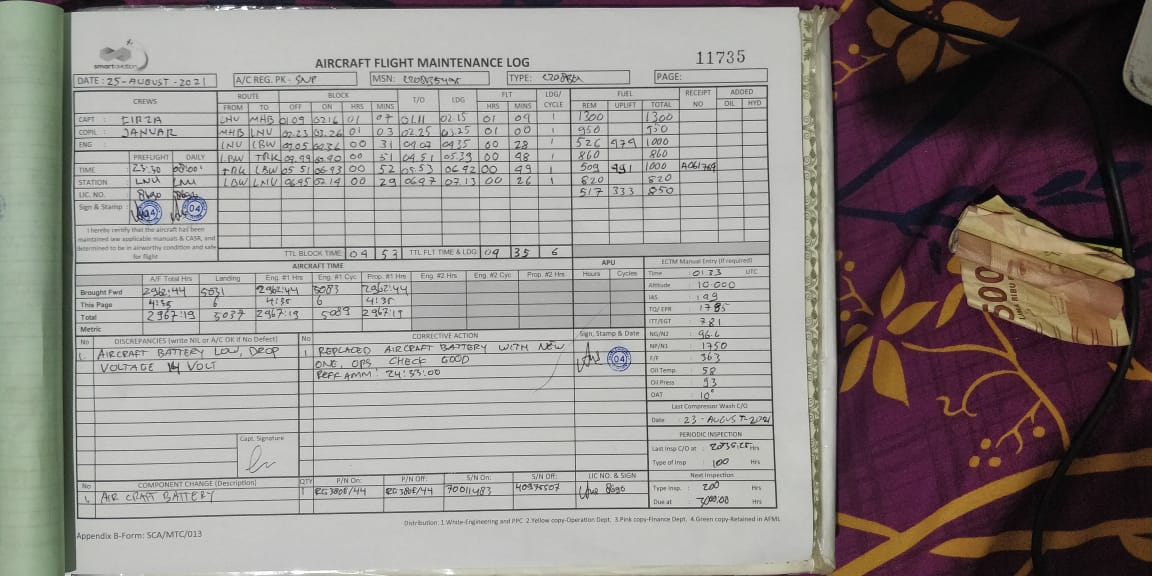 smartaviation
AIRCRAFT FLIGHT MAINTENANCE LOG
11735
DATE : 25-AUGUST-2021 A/C REG. PK - SNP MSN: TYPE: PAGE:
CREWS ROUTE BLOCK T/O LDG FLT LDG/CYCLE FUEL RECEIPT NO ADDED
FROM TO OFF ON HRS MINS HRS MINS REM UPLIFT TOTAL OIL HYD
CAPT : LNU MHB 01.09 02.16 01 07 01.11 02.15 01 04 1 1300 1300
COPIL : JANUAR MHB LNU 02.23 03.26 01 03 02.25 03.25 01 00 1 950 950
ENG : LNU LBW 04.05 04.36 00 31 04.07 04.35 00 28 1 526 474 1000
PREFLIGHT DAILY LBW TRK 51 04.51 05.39 00 48 1 860 860
TIME 23:30 00:00 TRK LBW 05.51 06.43 00 52 05.53 06.42 00 49 1 509 491 1000
STATION LNU LNU LBW LNU 06.45 07.14 00 29 06.47 07.13 00 26 1 820 820
LIC. NO. 8690 8690 517 333 850
Sign & Stamp 04 04
I hereby certify that the aircraft has been
maintained iaw applicable manuals & CASR, and
determined to be in airworthy condition and safe
for flight
TTL BLOCK TIME 04 53 TTL FLT TIME & LDG 04 35 6
AIRCRAFT TIME APU ECTM Manual Entry (If required)
A/F Total Hrs Landing Eng. #1 Hrs Eng. #1 Cyc Prop. #1 Hrs Eng. #2 Hrs Eng. #2 Cyc Prop. #2 Hrs Hours Cycles Time : 01:33 UTC
Brought Fwd 2962:44 5031 2962:44 5083 2962:44 Altitude : 10.000
This Page 4:35 6 4:35 6 4:35 IAS : 149
Total 2967:19 5037 2967:19 5089 2967:19 TQ/ EPR : 1785
Metric ITT/EGT : 781
No DISCREPANCIES (write NIL or A/C OK if No Defect) No CORRECTIVE ACTION Sign, Stamp & Date NG/N2 : 96.6
1. AIRCRAFT BATTERY LOW, DROP 1 REPLACED AIRCRAFT BATTERY WITH NEW NP/N1 : 1750
VOLTAGE 14 VOLT ONE, OPS CHECK GOOD 04 F/F : 363
REFF AMM: 24:33:00 Oil Temp. : 58
Oil Press : 93
OAT : 10°
Last Compressor Wash C/O
Date : 23-AUGUST-2021
Capt. Signature
PERIODIC INSPECTION
Last Insp C/O at : Hrs
Type of Insp : 100 Hrs
No COMPONENT CHANGE (Description) QTY P/N On: P/N Off: S/N On: S/N Off: LIC NO. & SIGN Next Inspection
1. AIR CRAFT BATTERY 1 RG380E/44 RG380E/44 70011483 40976507 8690 Type Insp. : 200 Hrs
Due at : 3000:00 Hrs
Distribution: 1.White-Engineering and PPC 2.Yellow copy-Operation Dept. 3.Pink copy-Finance Dept. 4.Green copy-Retained in AFML
Appendix B-Form: SCA/MTC/013